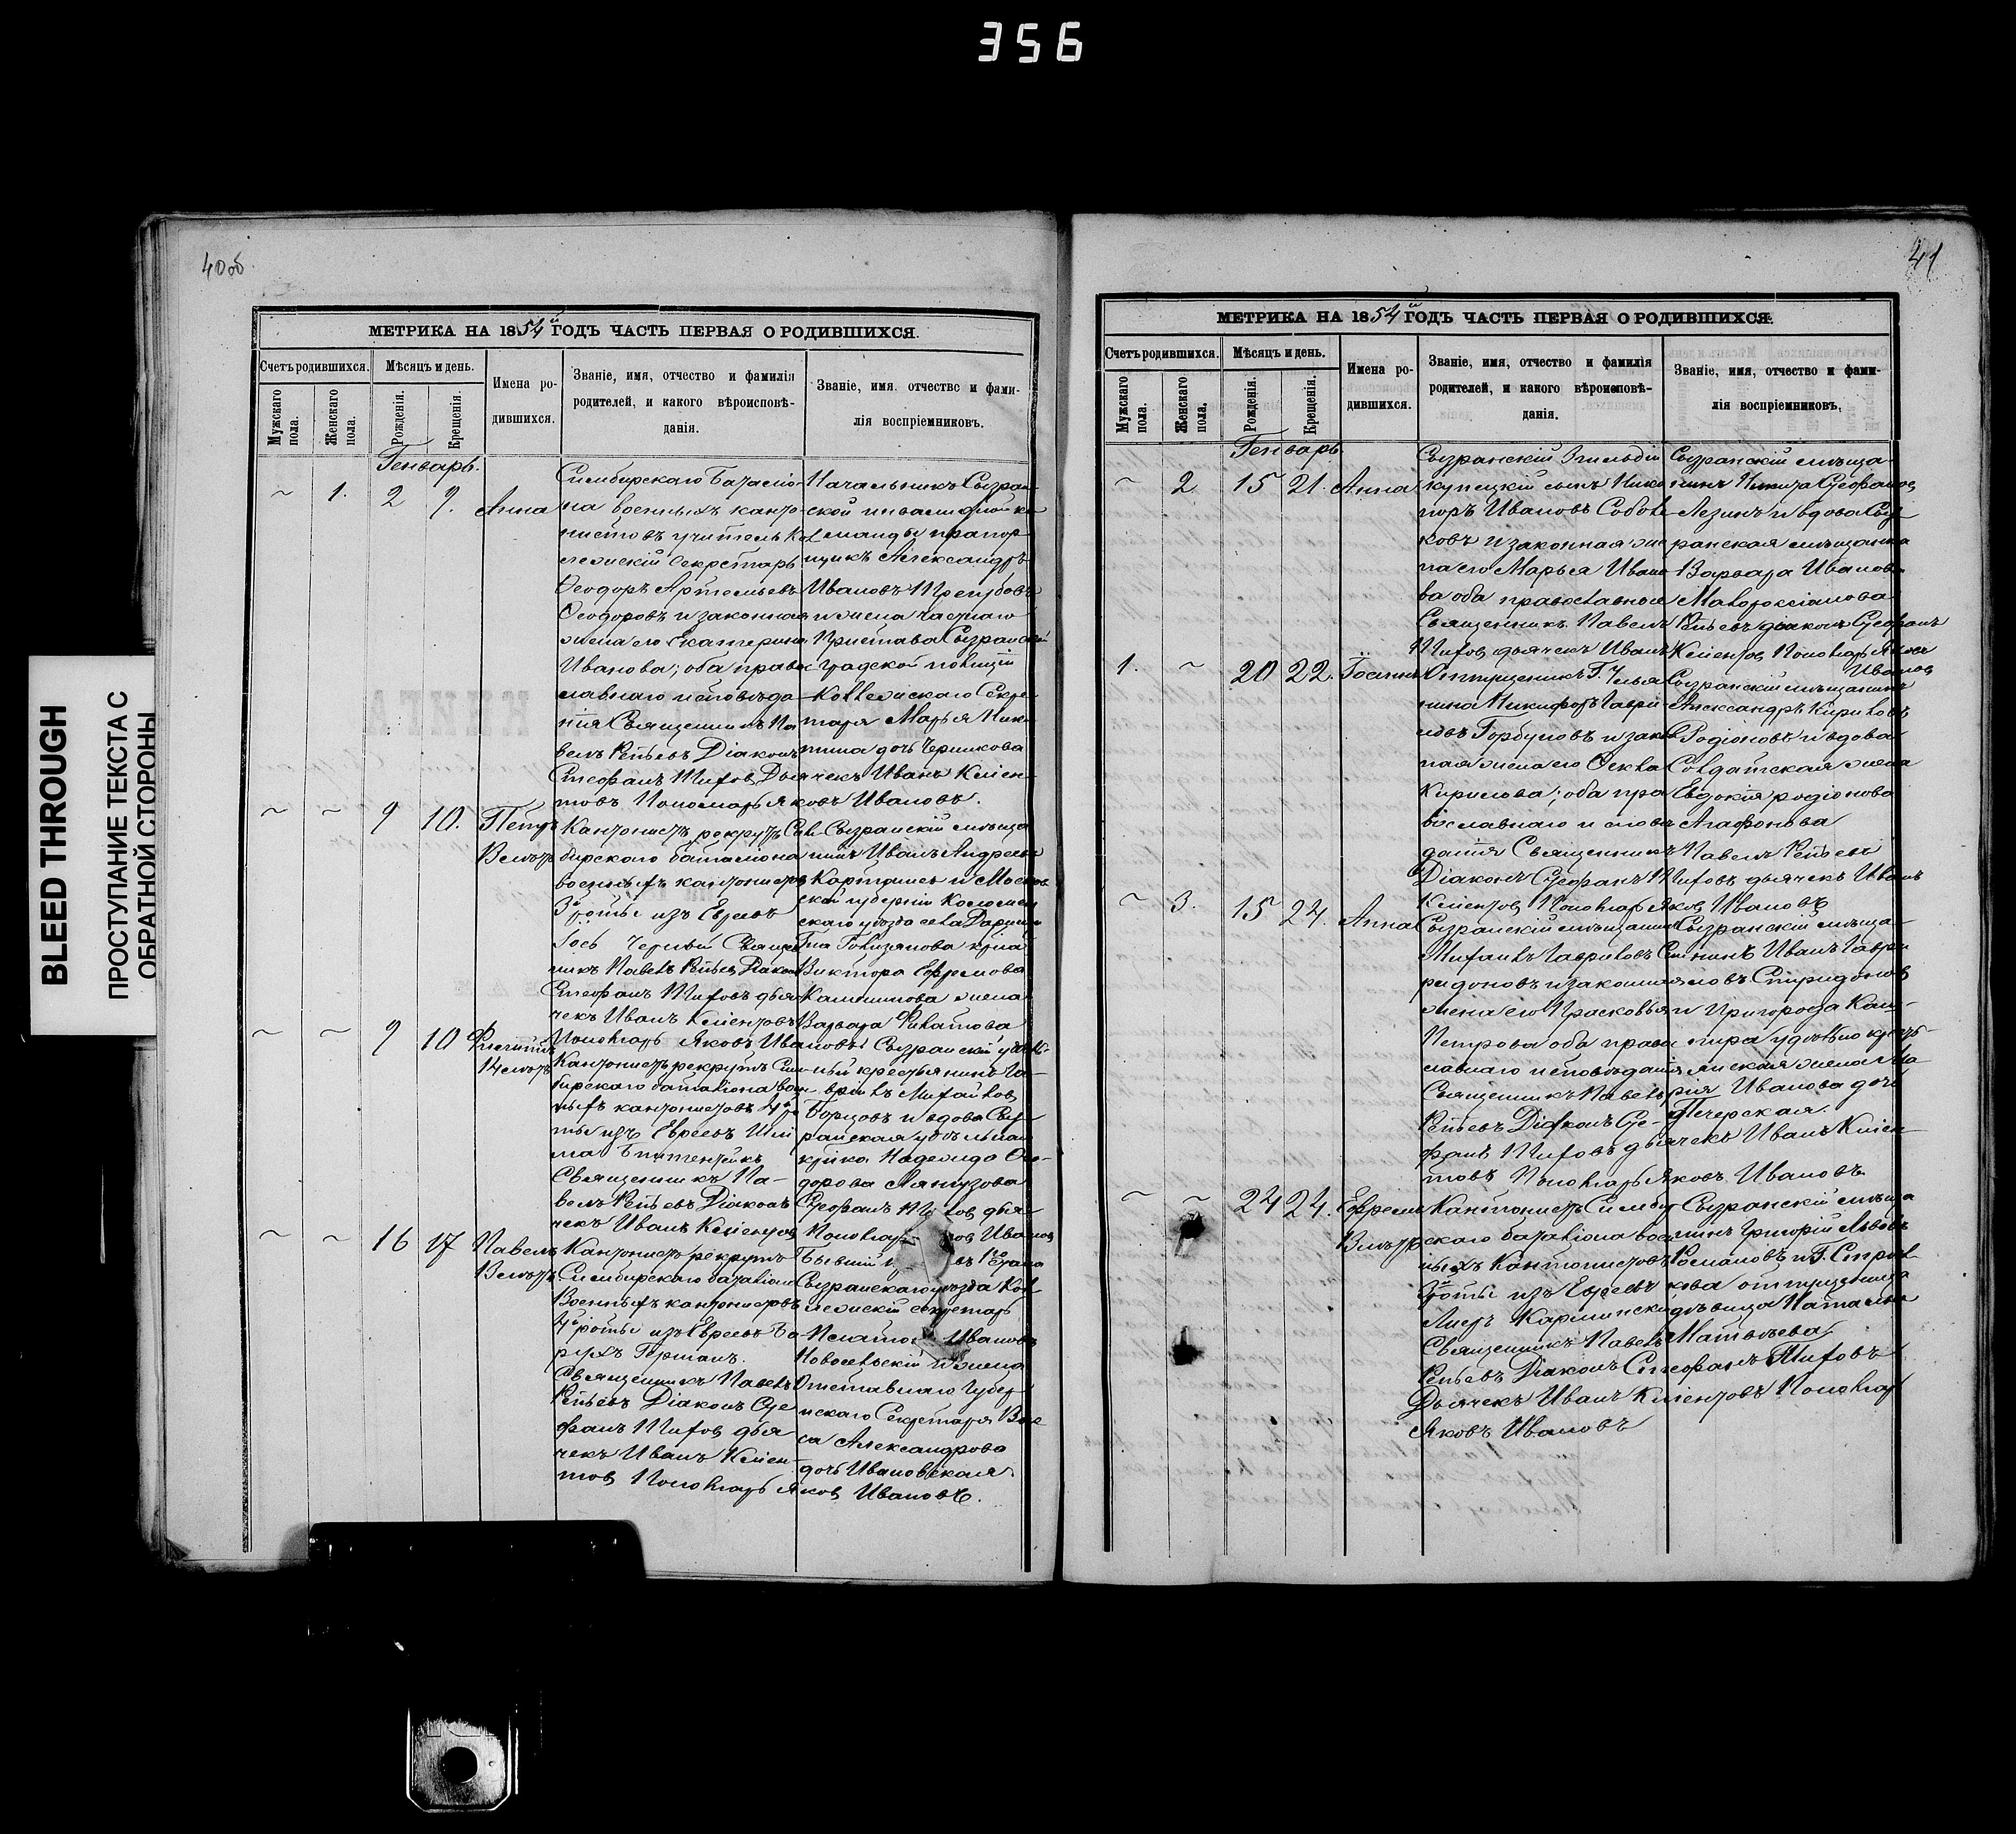 356
BLEED THROUGH
ПРОСТУПАНИЕ ТЕКСТА С
ОБРАТНОЙ СТОРОНЫ
40об.
МЕТРИКА НА 1854й ГОДЪ ЧАСТЬ ПЕРВАЯ О РОДИВШИХСЯ.
Счетъ родившихся.
Мѣсяцъ и день.
Имена ро-
дившихся.
Званіе, имя, отчество и фамилія
родителей, и какого вѣроисповѣ-
данія.
Званіе, имя, отчество и фами-
лія воспріемниковъ.
Мужскаго пола.
Женскаго пола.
Рожденія.
Крещенія.
Генварь.
~ 1. 2 9. Анна
Симбирскаго Баталіо-
на военныхъ канто-
нистовъ учитель Кол
лежскій Секретарь
Ѳеодоръ Артемьевъ
Ѳеодоровъ и законная
жена его Екатерина
Иванова; оба право
славнаго исповѣда
нія Священникъ Па
велъ Репьевъ Діаконъ
Стефанъ Тифов Дьячекъ Иванъ Клемен-
товъ Пономарь Яковъ Ивановъ.
Начальникъ Сызран
ской инвалидной ко
манды прапор
щикъ Александръ
Ивановъ
и жена Частнаго
Пристава Сызранской
градской полиціи
Коллежскаго Секре
таря Марья Ники
тина дочь Черникова
~ ~ 9 10. Петръ
13 лѣтъ
Кантонистъ рекрутъ Сим
бирскаго баталіона
военныхъ кантонистов
3й роты изъ Евреевъ
Іось Черный Священ
никъ Павелъ Репьев Діакон
Стефанъ Тифовъ дья
чекъ Иванъ Клементовъ
Пономарь Яковъ Ивановъ
Сызранскій мѣща
нинъ Иванъ Андреевъ
и Москов
ской губерніи Коломен
скаго уѣзда села
крѣп
Виктора Ефремова
Калашникова жена
Варвара Филатова
~ ~ 9 10
14 лѣтъ
Кантонистъ рекрутъ Сим
бирскаго баталіона воен
ныхъ кантонистовъ 4й ро
ты изъ Евреевъ
Священникъ Па-
велъ Репьевъ Діаконъ Стефанъ Тифов дья
чекъ Иванъ Клементов Пономарь Яков Иванов
Сызранскій удѣль-
ный крестьянинъ Га-
врилъ Михайлов
Борцовъ и вдова Сыз
ранская удѣльная
Надежда Ѳео-
дорова
~ ~ 16 17 Павелъ
13 лѣтъ
Кантонистъ рекрутъ
Симбирскаго баталіон
Военныхъ кантонистовъ
4й роты изъ Евреевъ Ба
рухъ Герман.
Священникъ Павелъ
Репьевъ Діаконъ Сте
фанъ Тифов дья
чекъ Иванъ Клемен-
тов Пономарь Яков Ивановъ.
Бывшій
Сызранскаго уѣзда Кол
лежскій секретарь
Ивановъ
Новосельскій и жена
Отставнаго Губер
нскаго Секретаря
са Александрова
дочь Ивановская
41
МЕТРИКА НА 1854й ГОДЪ ЧАСТЬ ПЕРВАЯ О РОДИВШИХСЯ.
Счетъ родившихся.
Мѣсяцъ и день.
Имена ро-
дившихся.
Званіе, имя, отчество и фамиліи
родителей, и какого вѣроисповѣ-
данія.
Званіе, имя, отчество и фами-
лія воспріемниковъ.
Мужскаго пола.
Женскаго пола.
Рожденія.
Крещенія.
Генварь.
~ 2 15 21. Анна
Сызранскій 3 гильдіи
купецкій сынъ Ника
норъ Ивановъ Соболе
ковъ и законная же
на его Марья Ивано
ва оба православныя
Священникъ Павелъ Репьевъ діаконъ Стефанъ
Тифов дьячекъ Иванъ Клементов Пономарь Яковъ
Иванов
Сызранскій мѣща-
нинъ Никита Стефанов
Лезинъ и вдова Сыз
ранская мѣщанка
Варвара Иванова
1. ~ 20 22. Іоаннъ
Отпущеникъ Г.
нина Никифоръ Гаври
ловъ Горбуновъ и закон
ная жена его Ѳекла
Кирилова; оба пра
вославнаго исповѣ
данія Священникъ Павелъ Репьевъ
Діаконъ Стефанъ Тифовъ дьячекъ Иванъ
Клементов Пономарь Яков Ивановъ
Сызранскій мѣщанинъ
Александръ Кириловъ
Родіоновъ и вдова
Солдатская жена
Евдокія родіонова
Агафонова
~ 3. 15 24. Анна
Сызранскій мѣщанинъ
Михаилъ Гавриловъ Спи
ридоновъ и законная
жена его Прасковья
Петрова оба право
славнаго исповѣданія
Священникъ Павелъ
Репьевъ Діаконъ Сте-
фанъ Тифовъ дьячекъ Иванъ Клемен
товъ Пономарь Яковъ Ивановъ
Сызранскій мѣща-
нинъ Иванъ Гаври
ловъ Спиридонов
и Пригорода Каш-
пира удѣльно кресть-
янская жена Ма
рія Иванова дочь
Печерская.
~ ~ 24 24. Ефремъ
13 лѣтъ
Кантонистъ Симбир
скаго баталіона воен
ныхъ Кантонистовъ
3й роты изъ Евреевъ
Лиеръ Карпински
Священникъ Павелъ
Репьевъ Діаконъ Стефанъ Тифовъ
Дьячекъ Иванъ Клементовъ Пономарь
Яковъ Ивановъ
Сызранскій мѣща
нинъ Григорій Львовъ
Романовъ и Г.
отпущеница
дѣвица Наталья
Матвѣева